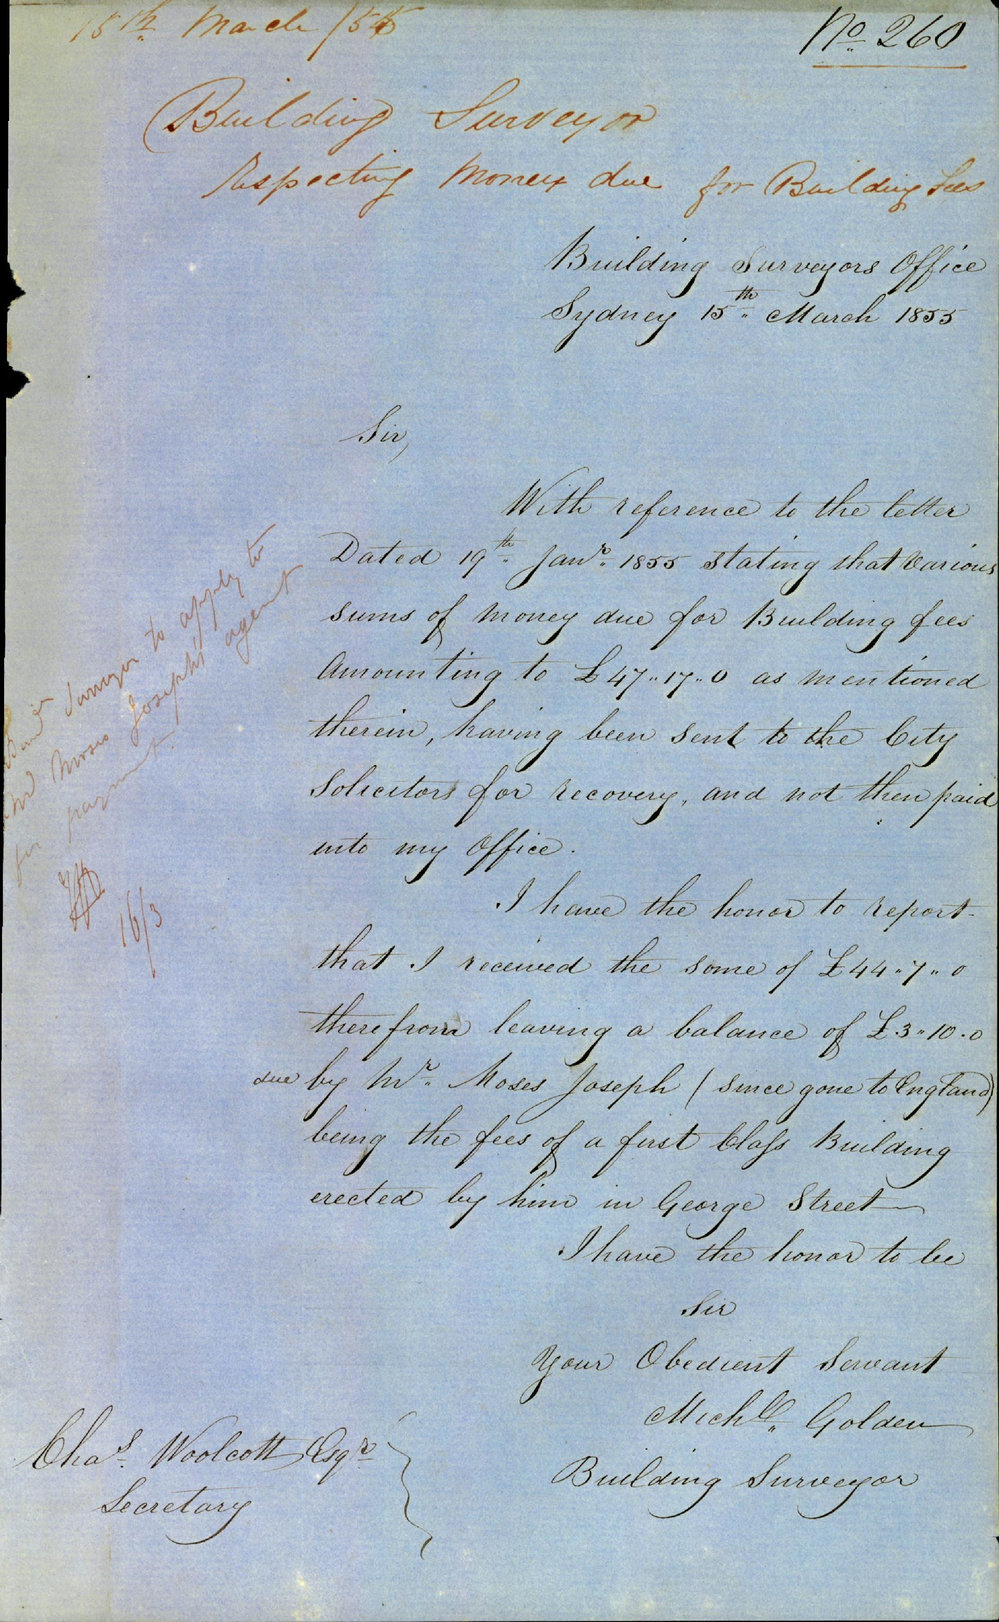 15th March /55
No 260
Building Surveyor
respecting Money due for Building Fees
Building Surveyors Office
Sydney 15th March 1855
Sir,
With reference to the letter
Dated 19th Janr. 1855 stating that Various
sums of money due for Building fees
Amounting to £47..17..0 as mentioned
therein, having been sent to the City
Solicitors for recovery, and not then paid
into my Office.
I have the honor to report
that I received the some of £44..7..0
therefrom leaving a balance of £3..10..0
due by Mr. Moses Joseph (since gone to England)
being the fees of a first Class Building
erected by him in George Street
I have the honor to be
Sir
Your Obedient Servant
Michl. Golden
Building Surveyor
Chas. Woolcott Esqre
Secretary
Surveyor to apply to
Mr Moses Josephs' agent
for payment.
16/3